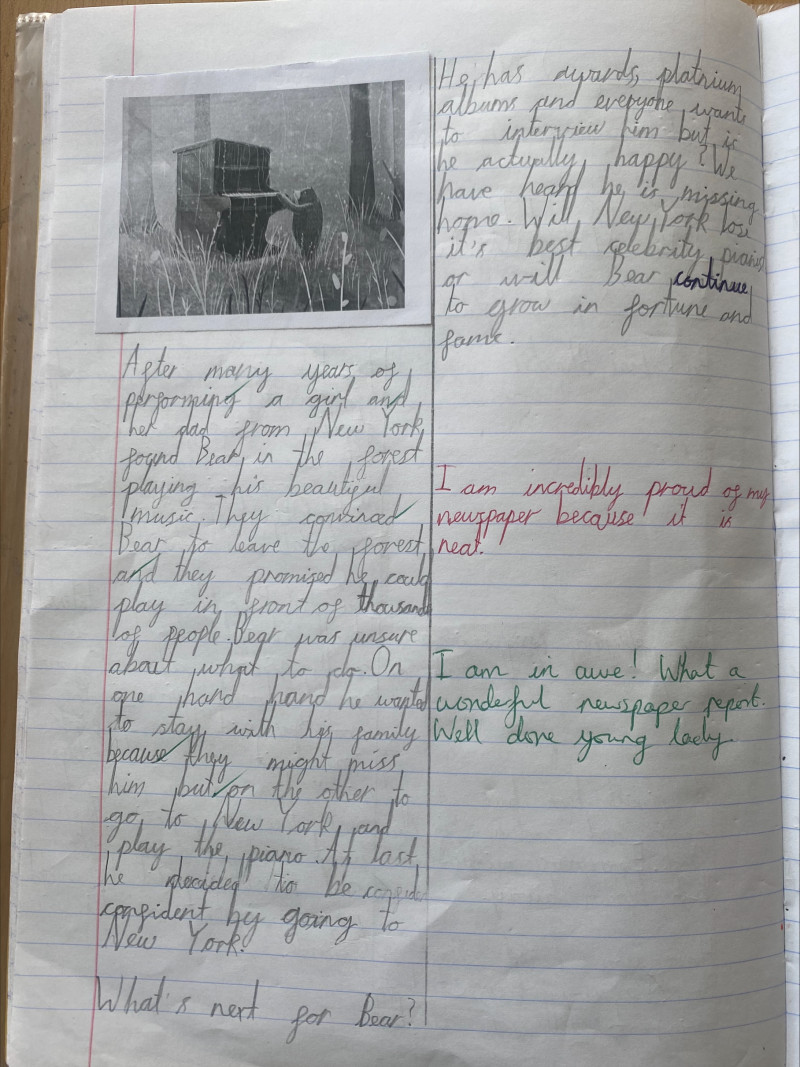 After many years of
performing a girl and
her dad from New York
found Bear in the forest
playing his beautiful
music. They convinced
Bear to leave the forest
and they promised he could
play in front of thousands
of people. Bear was unsure
about what to do. On
one hand hand he wanted
to stay with his family
because they might miss
him but on the other to
go to New York and
play the piano. At last
he decided to be
confident by going to
New York.
What's next for Bear?
He has awards, platnium
albums and everyone wants
to interview him but is
he actually happy? We
have heard he is missing
home. Will New York lose
it's best celebrity pianist
or will Bear continue
to grow in fortune and
fame.
I am incredibly proud of my
newspaper because it is
neat.
I am in awe! What a
wonderful newspaper report.
Well done young lady.